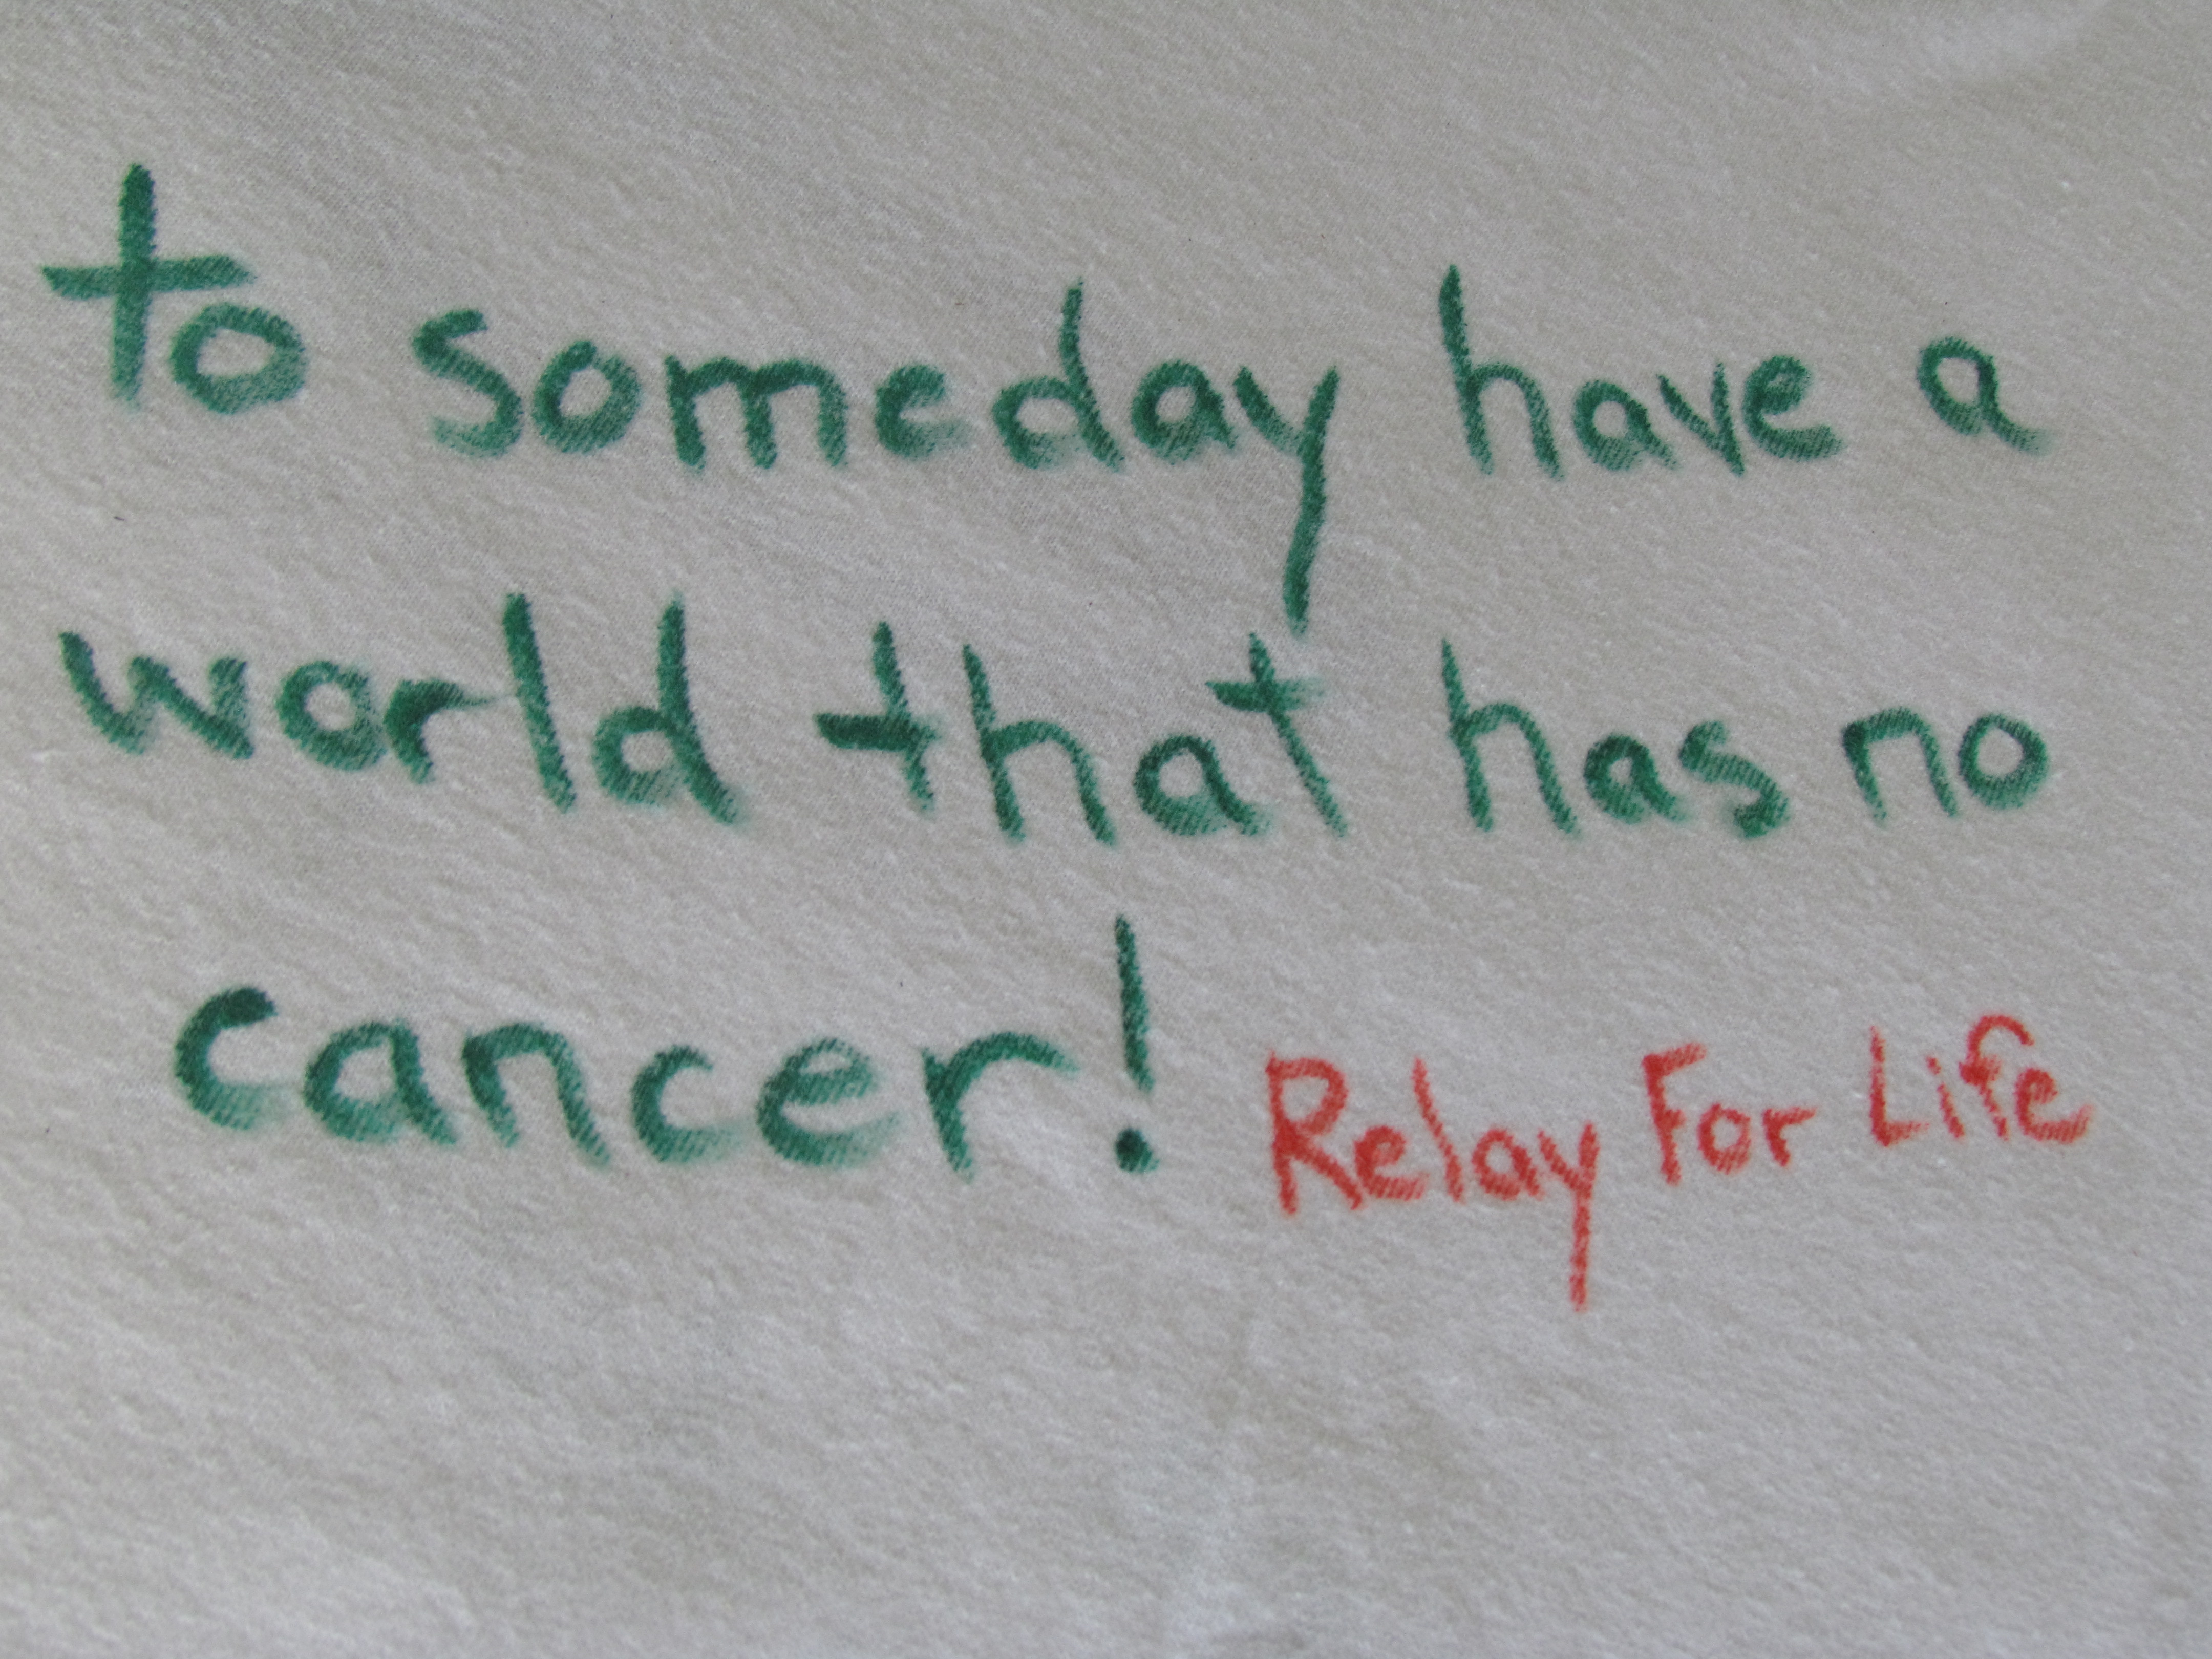 to someday have a
world that has no
cancer! Relay For Life